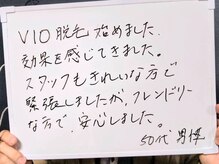 VIO脱毛始めました.
効果を感じてきました。
スタッフもきれいな方で
緊張しましたが、フレンドリー
な方で、安心しました。
50代 男性